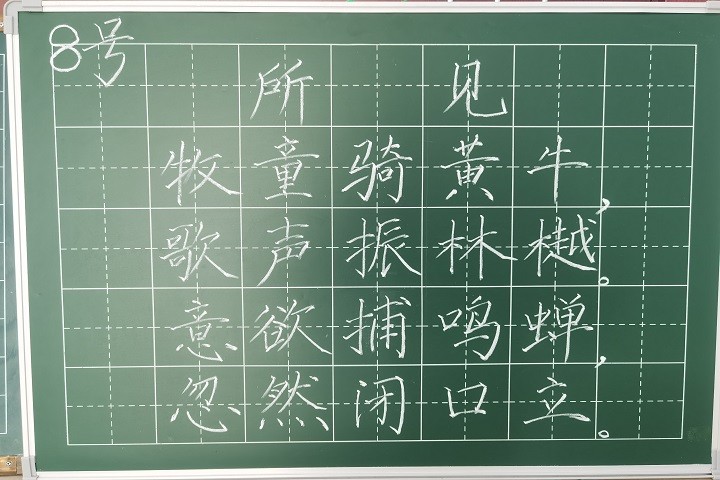 8号
所见
牧童骑黄牛,
歌声振林樾。
意欲捕鸣蝉,
忽然闭口立。